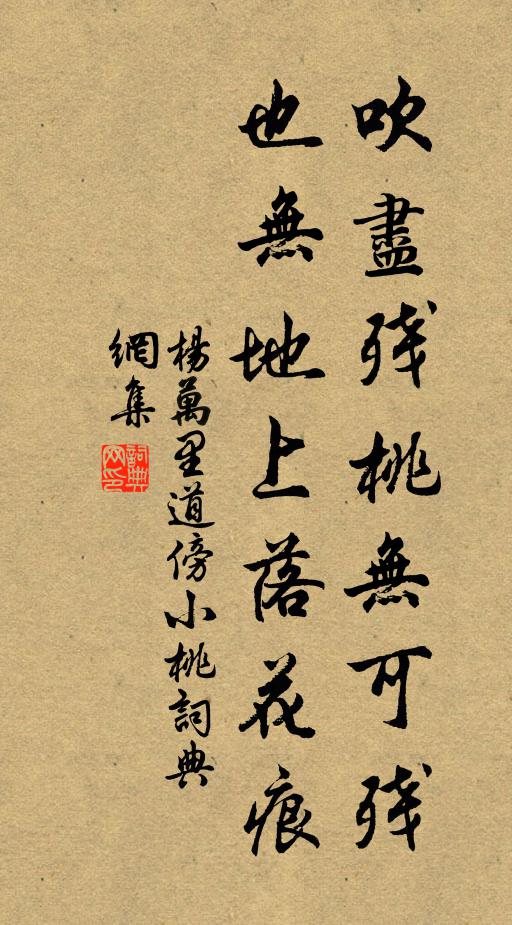 吹盡残桃無可残
也無地上落花痕
楊萬里道傍小桃詞典
網集
詞典
网印